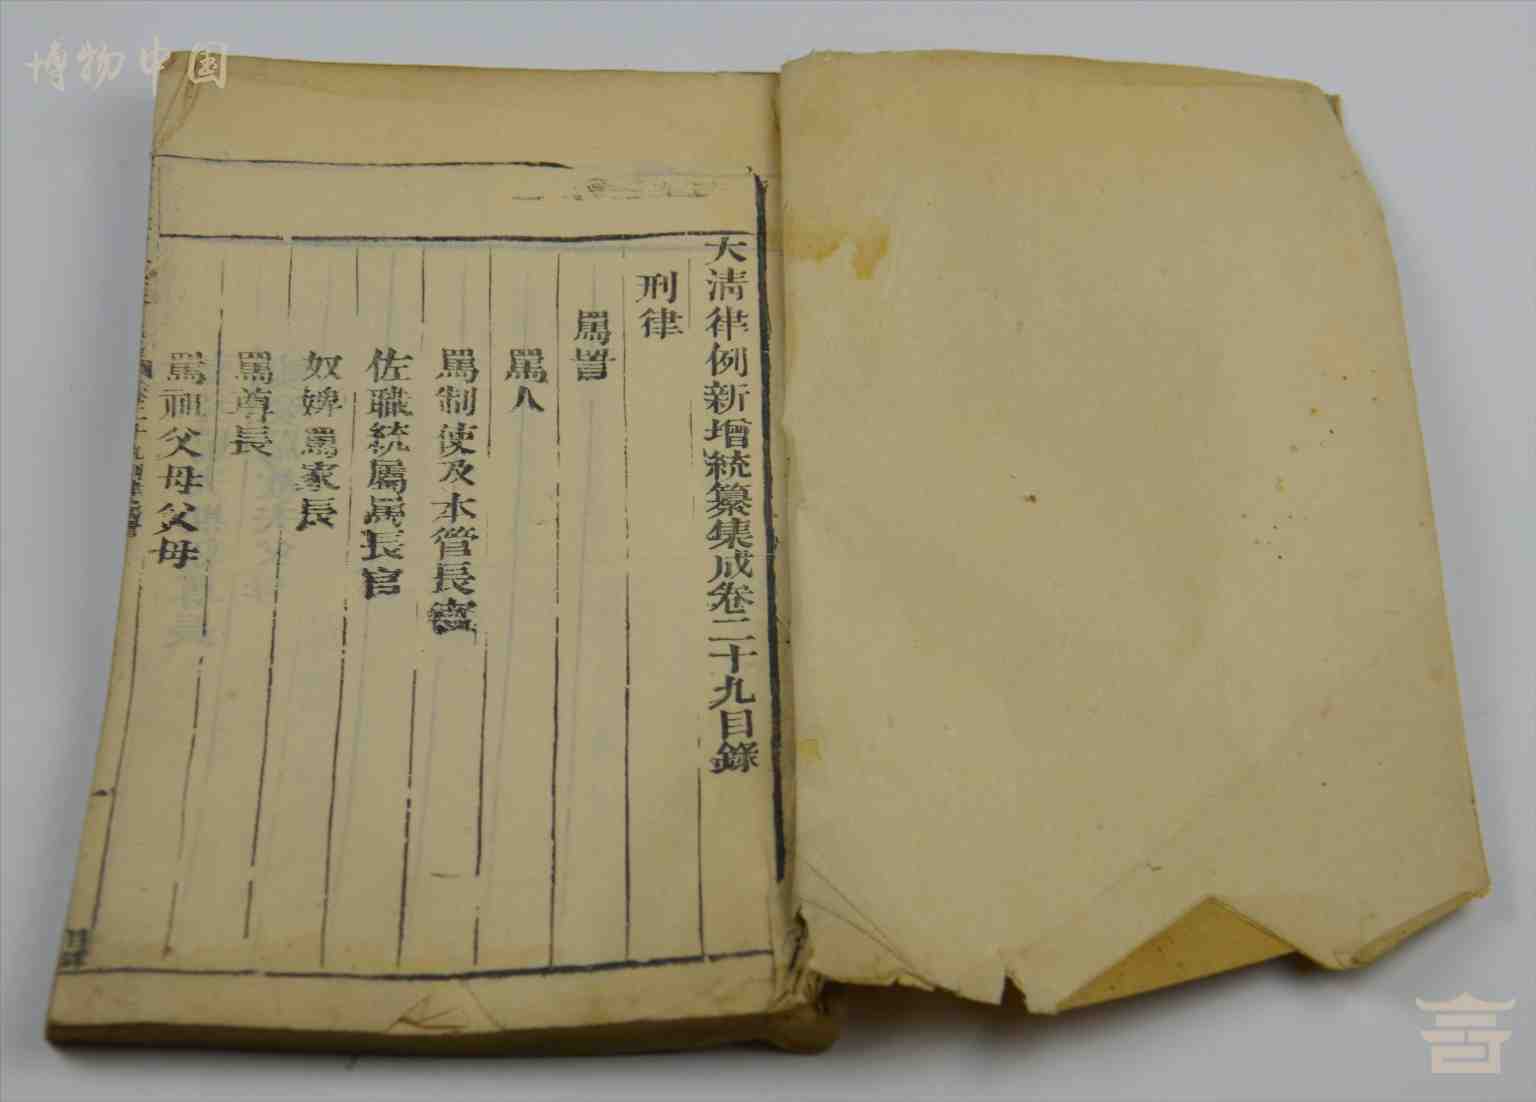 博物中国
大清律例新增統纂集成卷二十九目錄
刑律
罵詈
罵人
罵制使及本管長官
佐職統屬罵長官
奴婢罵家長
罵尊長
罵祖父母父母